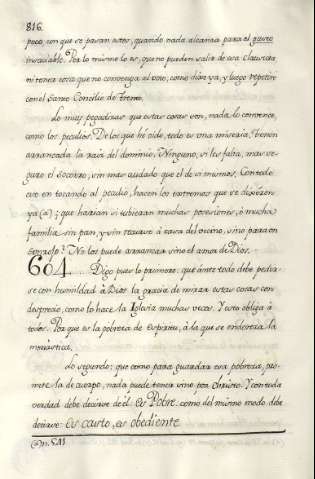 816.
poco, con que se pasan estos, quando nada alcanza para el gusto
insaciable. Por lo mismo lo es, que no pueden salir de esa Clausura
ni tener cosa que no convenga al voto, como dixe ya, y luego repetiré
con el Santo Concilio de Trento.
Lo muy pegadizas que estas cosas son, nada lo convence,
como los peculios. De los que hé oído, todo es una miseria, tienen
arrancada la raiz del dominio, Ninguno, si les falta, mas se-
guro el socorro, sin mas cuidado que el de si mismos. Con todo
eso en tocando al peculio, hacen los extremos que se dixeron
ya (a); que harian si ubieran muchas posesiones, ó mucha
familia sin pan, y sin tocarse á casa del vecino, sino para on
No los puede arrancar sino el amor de Dios.
604. Digo pues lo primero: que ante todo debe pedir-
se con humildad à Dios la gracia de mirar estas cosas con
desprecio, como lo hace la Iglesia muchas veces. Y esto obliga à
todos. Por que es la pobreza de Espiritu, à la que se endereza la
monástica.
Lo segundo: que como para guardar esa pobreza, pro-
mete la de cuerpo, nada puede tener sino por Christo. Y con toda
verdad debe decirse de él: Es Pobre. como del mismo modo debe
decirse: Es casto, es obediente
(a) n. 511